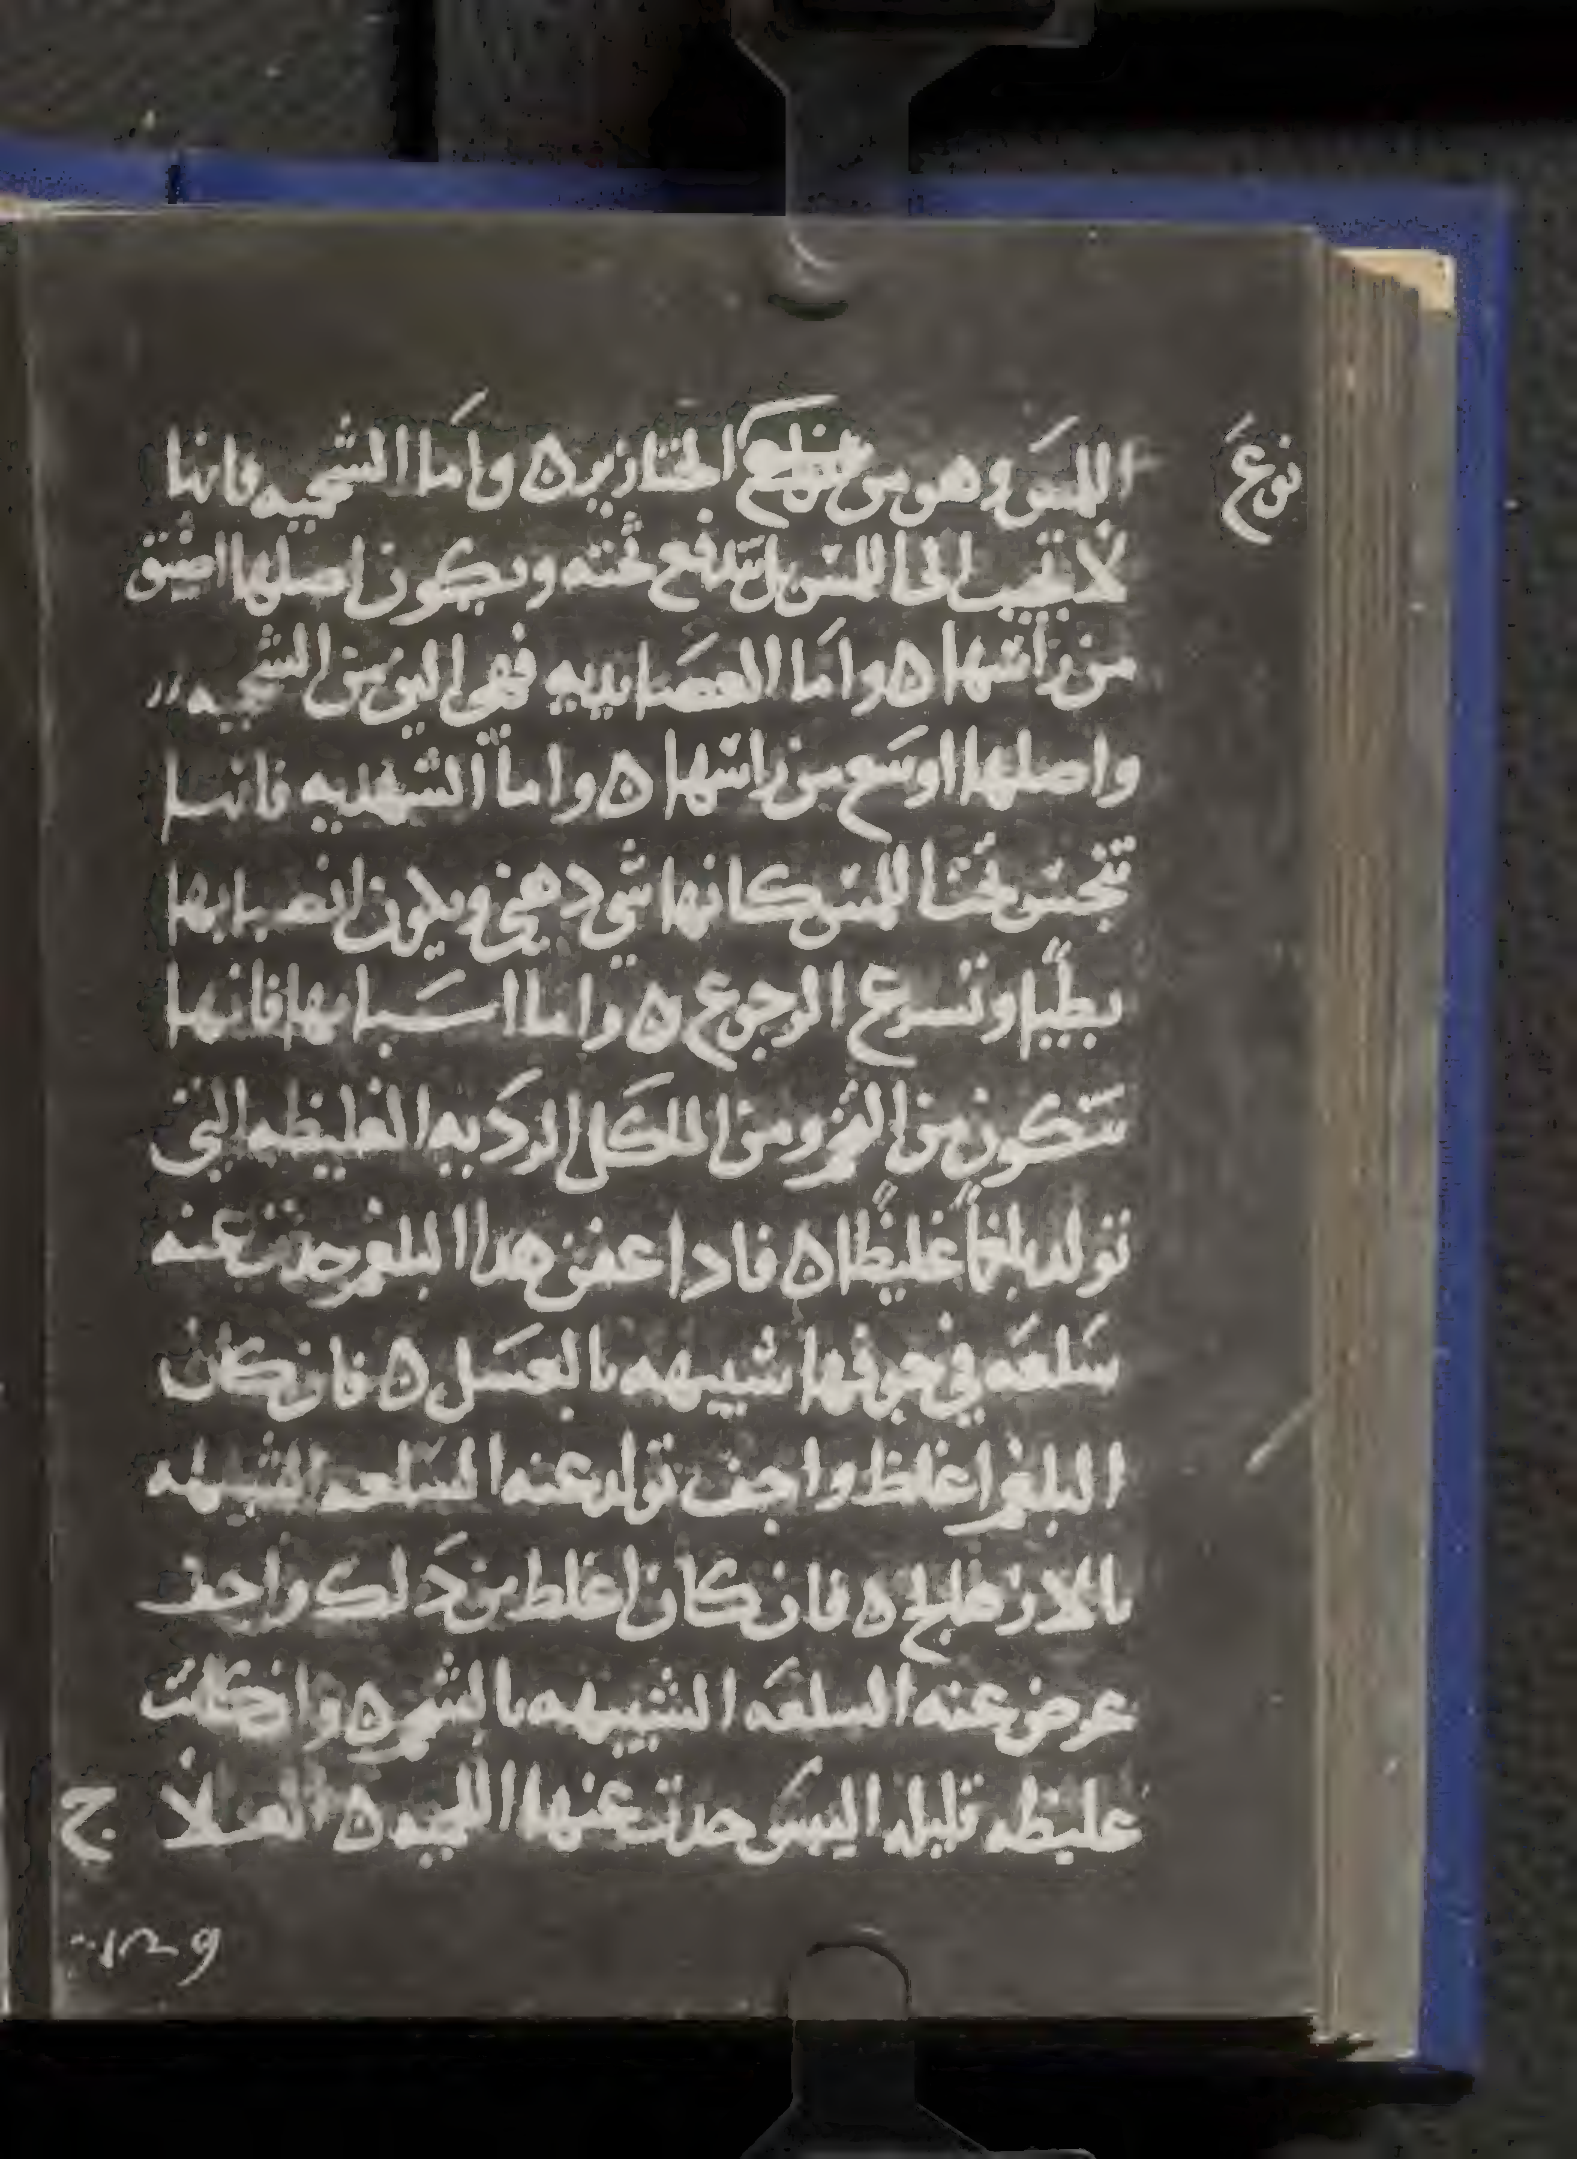 نوع
اللمس وهو من الخنازير ٥ واما الشحميه فانها
لا تجيب الى اللمس بل تندفع تحته ويكون اصلها اضيق
من راسها ٥ واما العصايديه فهي الين من الشحميه
واصلها اوسع من راسها ٥ واما الشهديه فانها
تنجس تحت اللمس كانها شي دهني ويكون انصبابها
بطيا وتسرع الرجوع ٥ واما اسبابها فانها
تتكون من التخم ومن الماكل الرديه الغليظه التي
تولد بلغما غليظا ٥ فادا عفن هدا البلغم حدث عنه
سلعه في جوفها شبيهه بالعسل ٥ فان كان
البلغم اغلظ واجف تولد عنه السلعه الشبيهه
بالاردهالج ٥ فان كان اغلط من دلك واجف
عرض عنه السلعه الشبيهه بالشحم ٥ وان كانت
غليظه قليله اليبس حدث عنها اللحميه ٥ العلاج